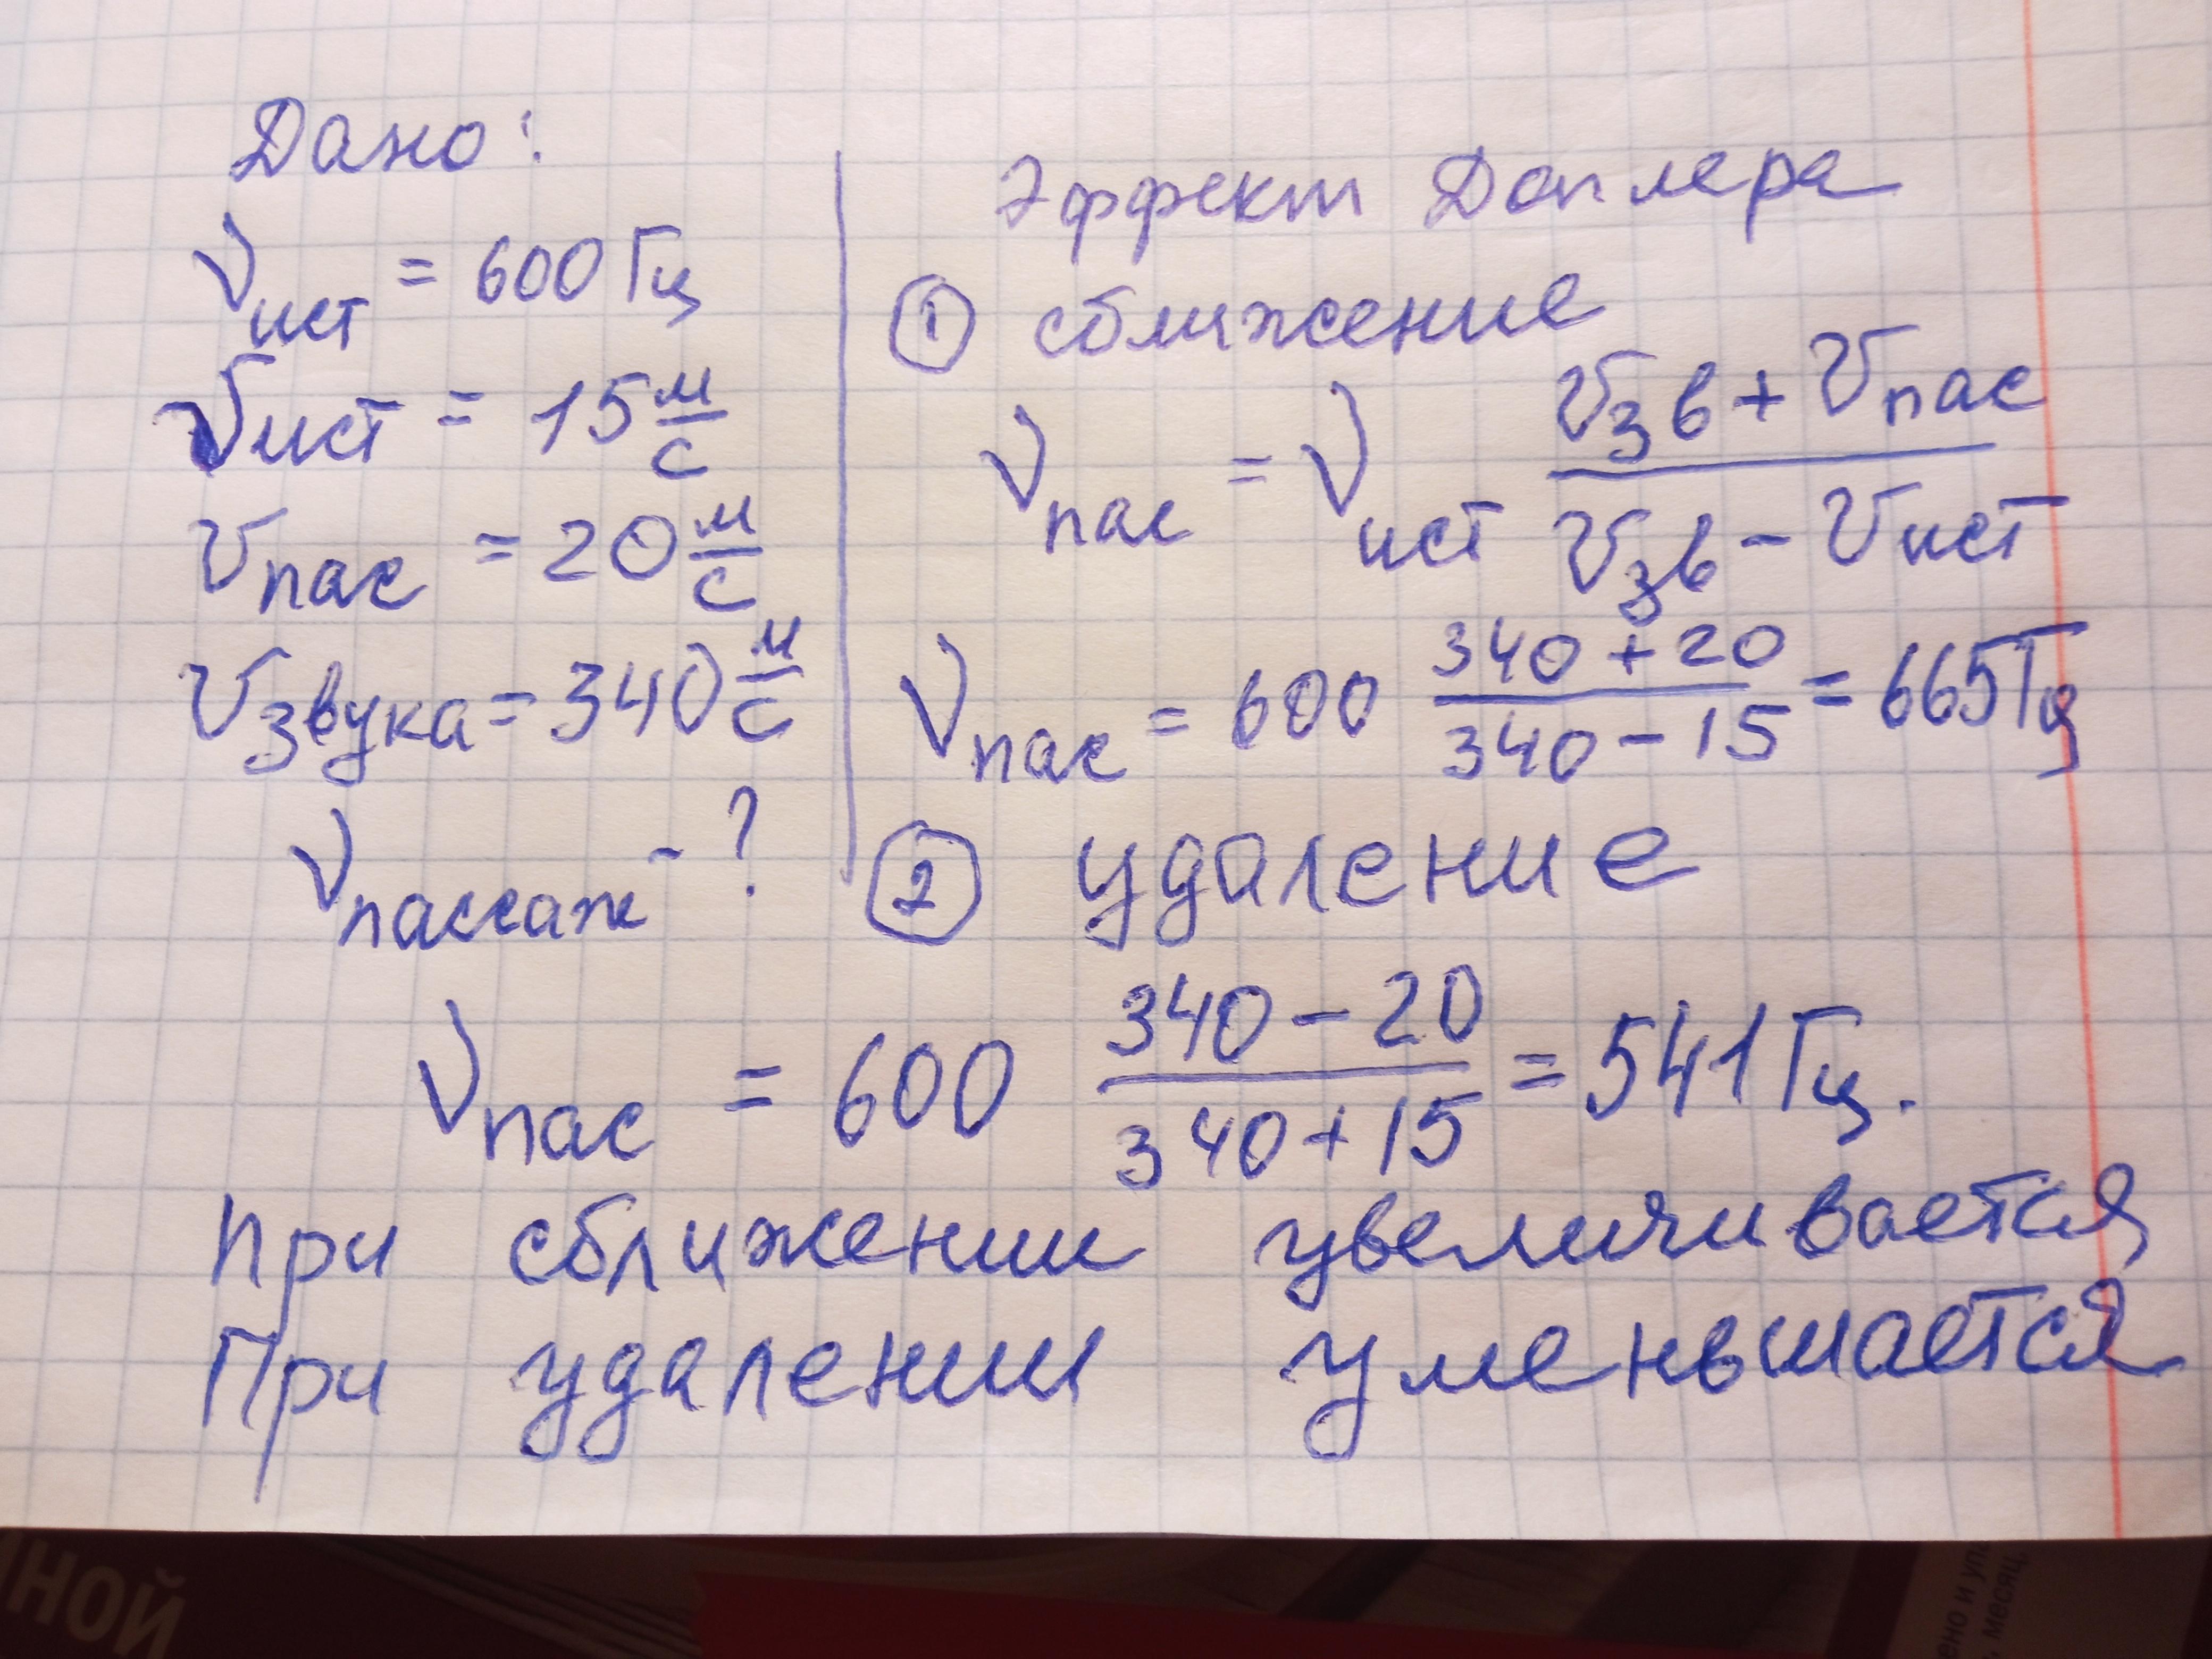 Дано:
ν ист = 600 Гц
v ист = 15 м/с
v пас = 20 м/с
v звука = 340 м/с
ν пассаж - ?
Эффект Доплера
① сближение
ν пас = ν ист (v зв + v пас)/(v зв - v ист)
ν пас = 600 (340 + 20)/(340 - 15) = 665 Гц
② удаление
ν пас = 600 (340 - 20)/(340 + 15) = 541 Гц.
При сближении увеличивается
При удалении уменьшается
НОЙ
ено и упа
месяц